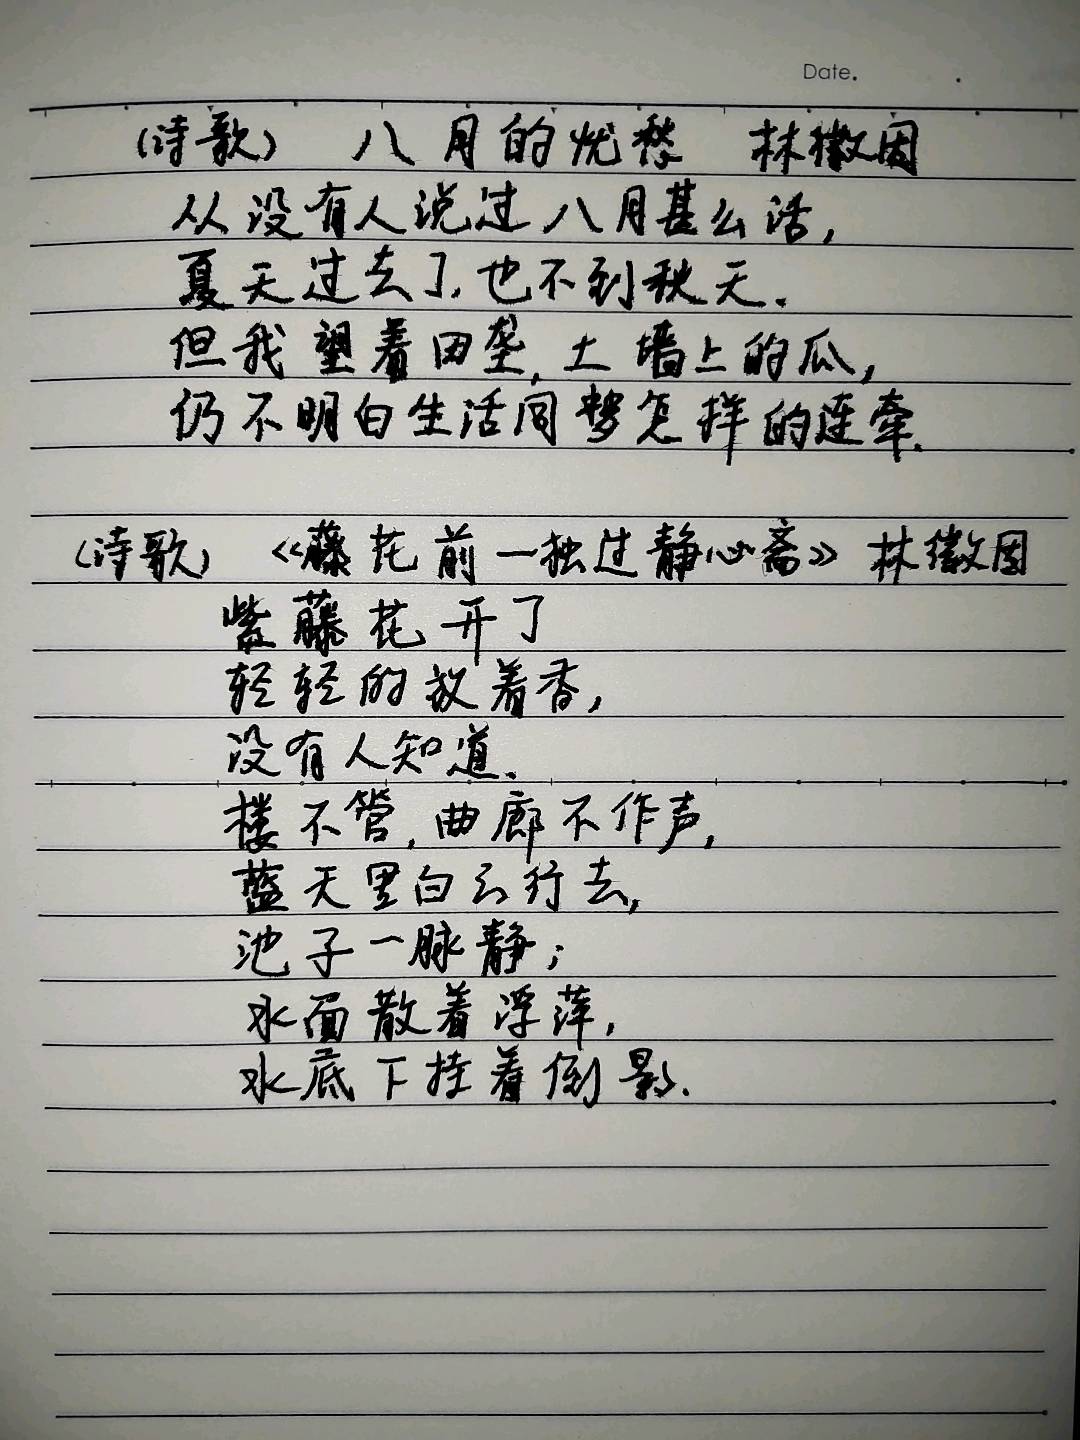 Date.
(诗歌) 八月的忧愁 林徽因
从没有人说过八月甚么话,
夏天过去了,也不到秋天.
但我望着田垄,土墙上的瓜,
仍不明白生活同梦怎样的连牵.
(诗歌) 《藤花前一独过静心斋》 林徽因
紫藤花开了
轻轻的放着香,
没有人知道.
楼不管,曲廊不作声,
蓝天里白云行去,
池子一脉静;
水面散着浮萍,
水底下挂着倒影.